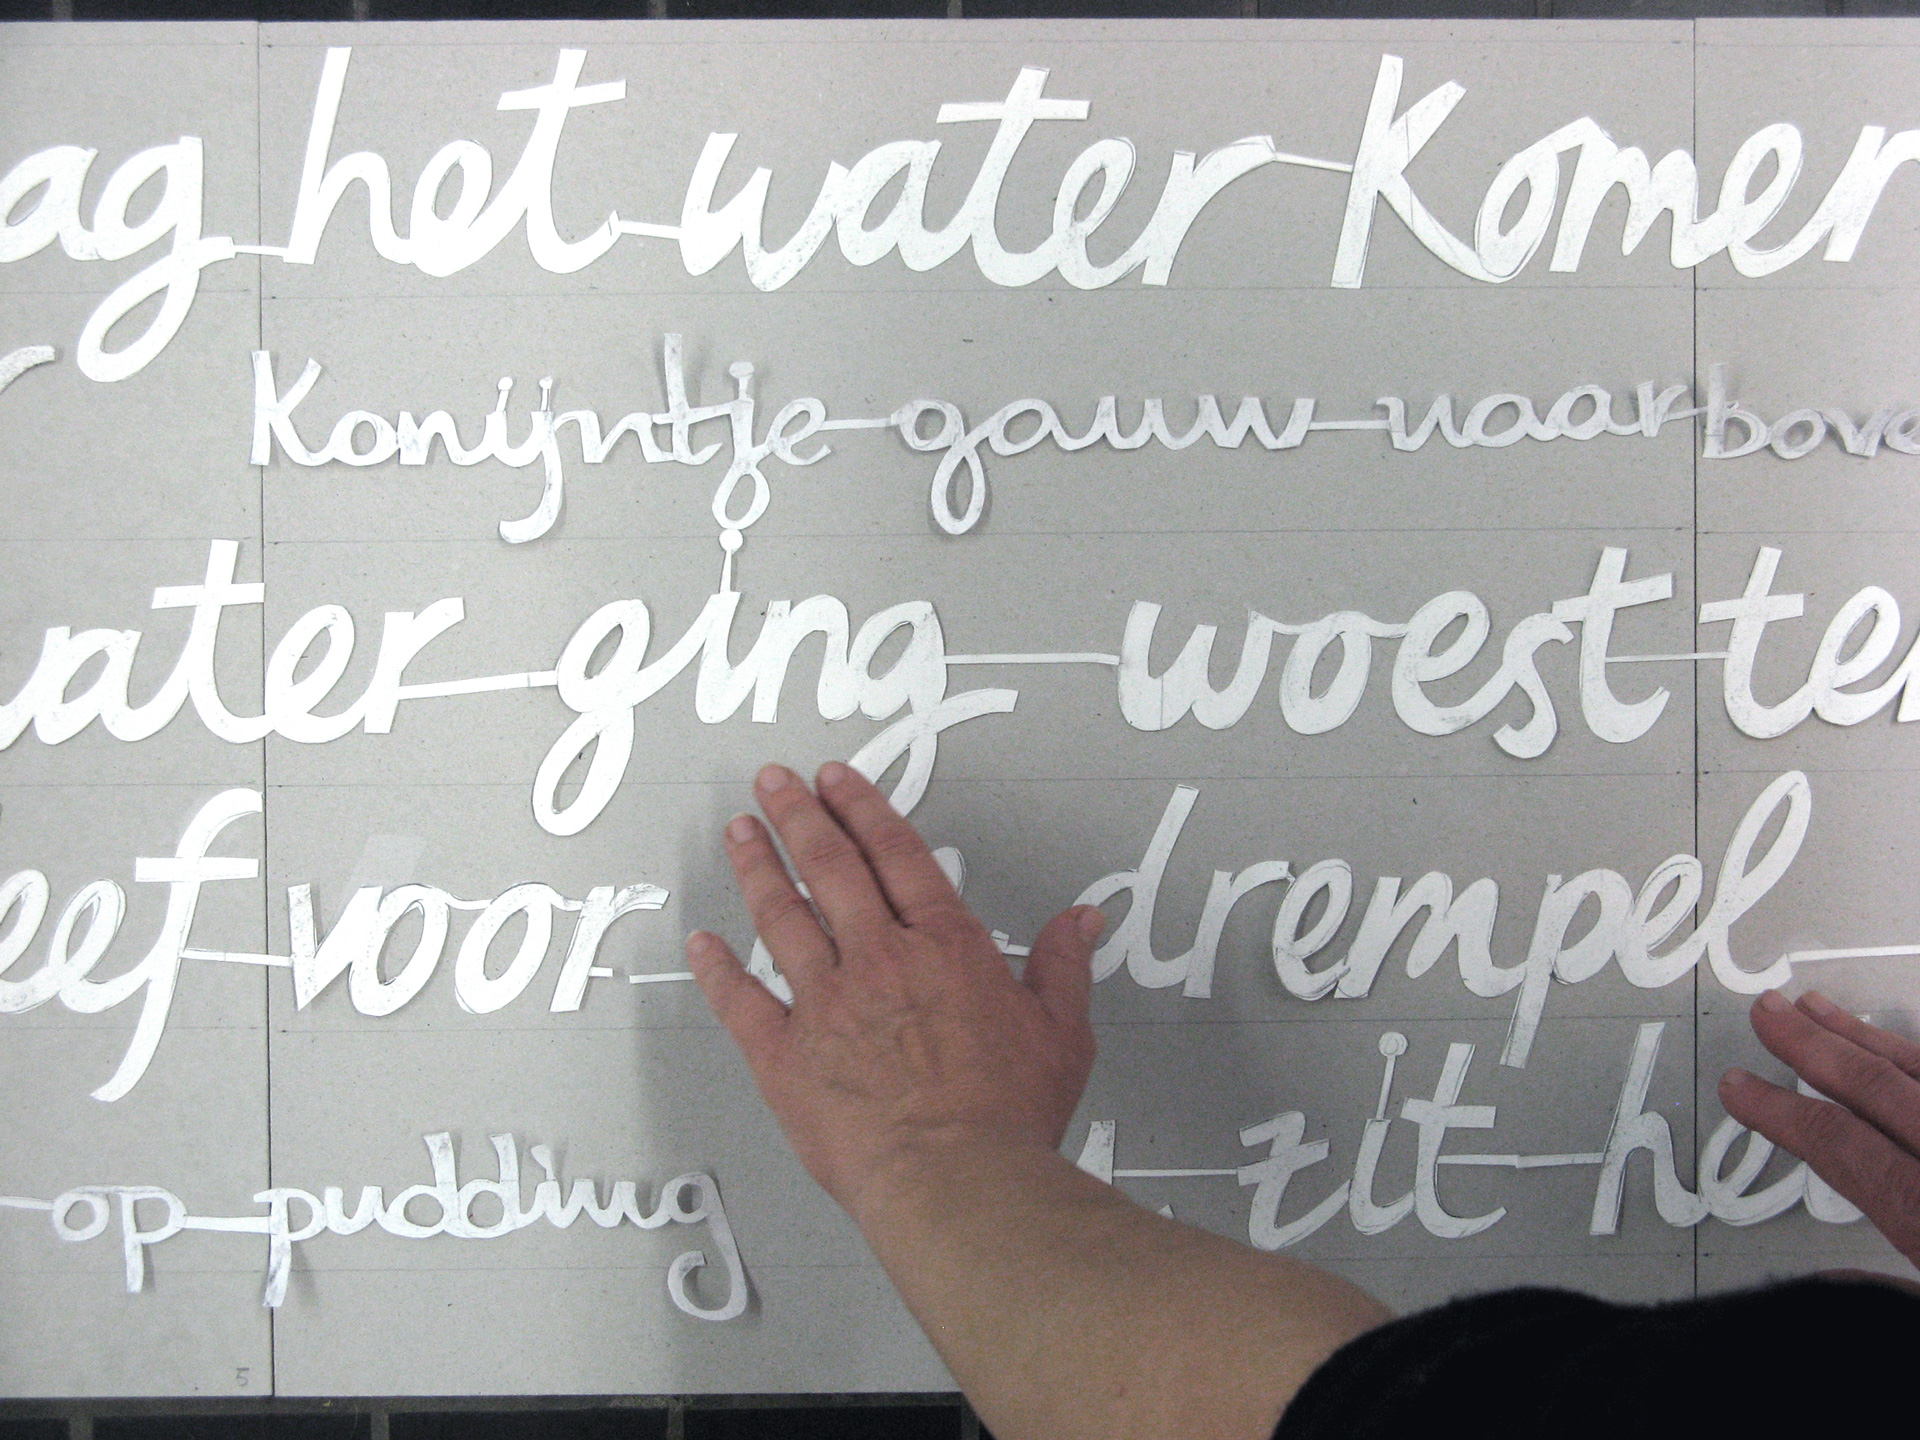 ag het water Komen
Konijntje gauw naar bove
water ging woest ter
eef voor de drempel
op pudding zit het
5